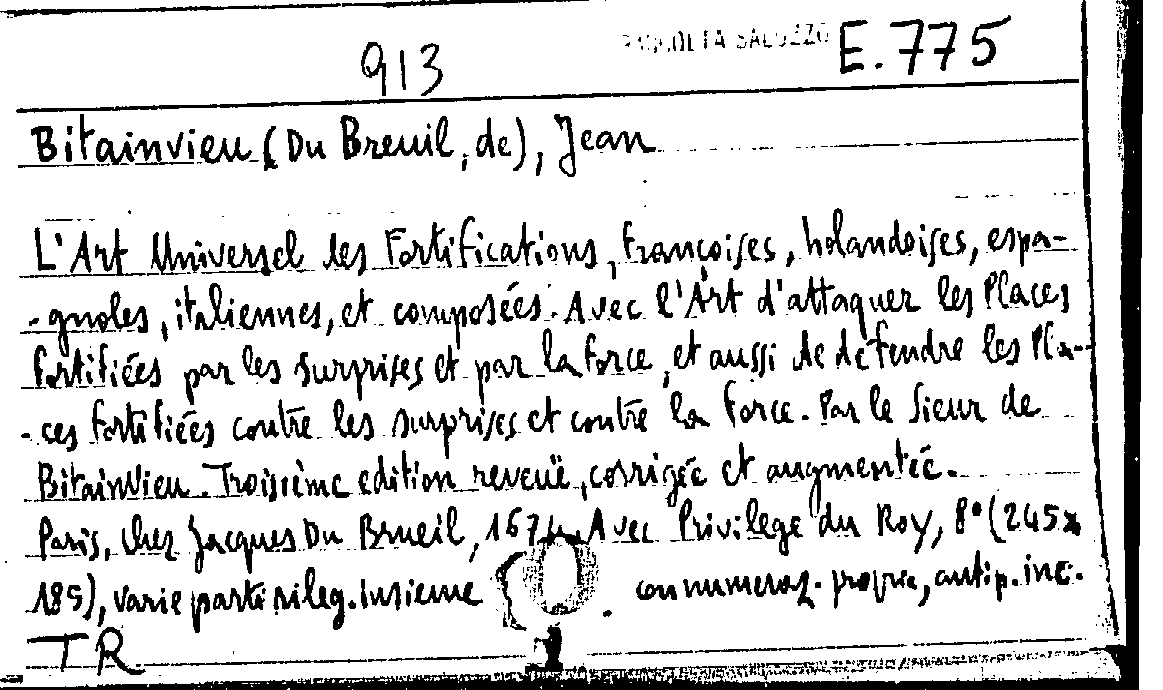 913 RACCOLTA SALUZZO E.775
Bitainvieu (Du Breuil, de), Jean
L'Art Universel des Fortifications, françoises, holandoises, espa-
-gnoles, italiennes, et composées. Avec l'Art d'attaquer les Places
fortifiées par les surprises et par la force, et aussi de defendre les Pla-
-ces fortifiées contre les surprises et contre la force. Par le Sieur de
Bitainvieu. Troisième edition reveuë, corrigée et augmentée.
Paris, chez Jacques Du Brueil, 1674. Avec Privilege du Roy, 8° (245x
185), varie parti rileg. insieme con numeraz. propria, antip. inc.
TR